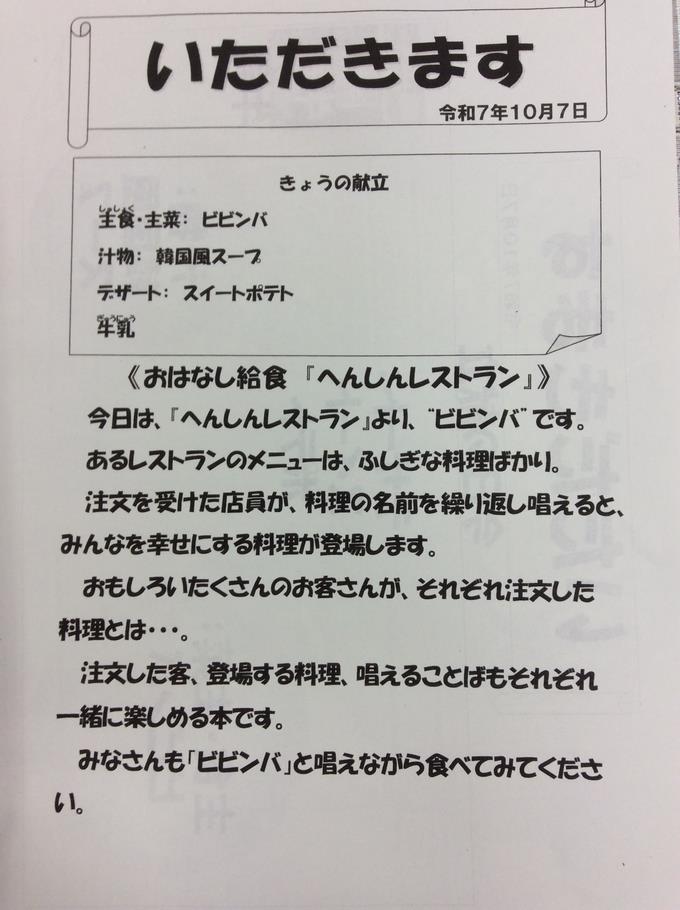 いただきます
令和7年10月7日
きょうの献立
主食・主菜： ビビンバ
汁物： 韓国風スープ
デザート： スイートポテト
牛乳
《おはなし給食 『へんしんレストラン』》
今日は、『へんしんレストラン』より、“ビビンバ”です。
あるレストランのメニューは、ふしぎな料理ばかり。
注文を受けた店員が、料理の名前を繰り返し唱えると、
みんなを幸せにする料理が登場します。
おもしろいたくさんのお客さんが、それぞれ注文した
料理とは・・・。
注文した客、登場する料理、唱えることばもそれぞれ
一緒に楽しめる本です。
みなさんも「ビビンバ」と唱えながら食べてみてくださ
い。